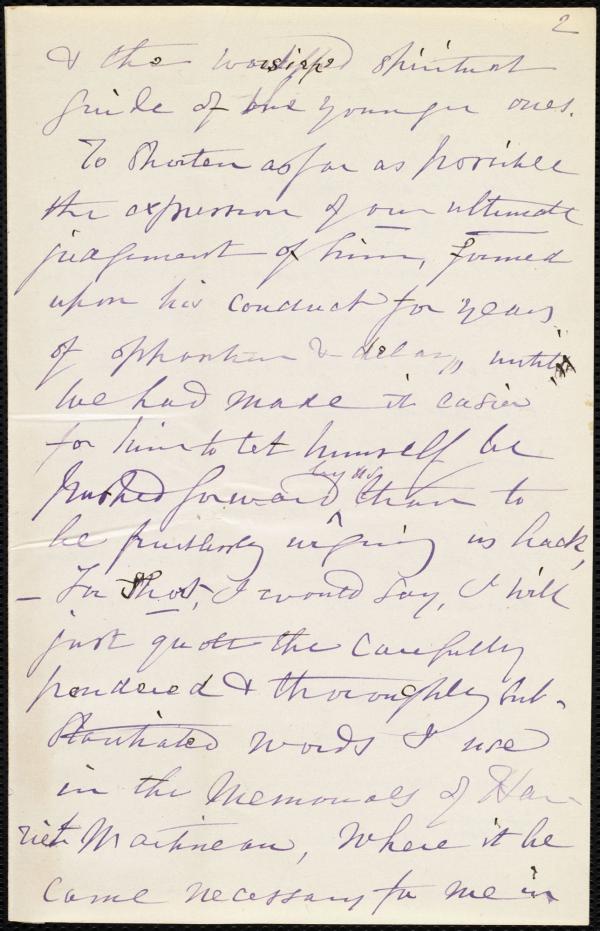 2
& the worshipped spiritual
guide of the younger ones.
To shorten as far as possible
the expression of our ultimate
judgement of him, formed
upon his conduct for years
of opposition & delay, until
we had made it easier
for him to let himself be
pushed forward by us than to
be fruitlessly urging us back,
— For that, I would say, I will
just quote the carefully
pondered & thoroughly sub-
stantiated words I use
in the Memorials of Har-
riet Martineau, where it be
came necessary for me in